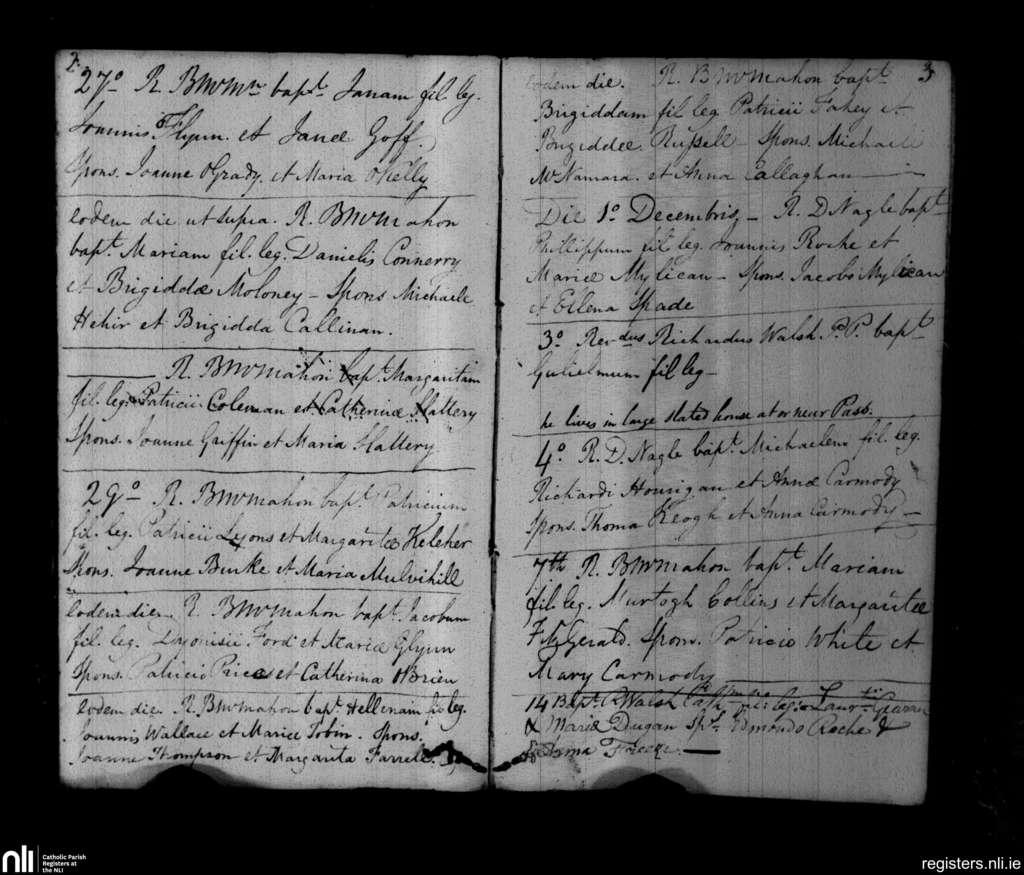 2.
27º R. BMcMn bapt. Janam fil. leg.
Joannis Flynn. et Janæ Goff.
Spons. Joanne OGrady. et Maria OKelly
eodem die ut supra. R. BMcMahon
bapt. Mariam fil. leg. Danielis Connerry
et Brigiddæ Moloney - Spons Michaele
Hehir et Brigidda Callinan.
R. BMcMahon bapt. Margaritam
fil. leg. Patricii Coleman et Catherinæ Slattery
Spons. Joanne Griffin et Maria Slattery
29º R. BMcMahon bapt. Patricium
fil. leg. Patricii Lyons et Margaritæ Keleher
Spons. Joanne Burke et Maria Mulvihill
eodem die. R. BMcMahon bapt. Jacobum
fil. leg. Dyonisii Ford et Mariæ Glynn
Spons. Patricio Price et Catherina OBrien
eodem die. R. BMcMahon bapt. Hellenam fil leg.
Joannis Wallace et Mariæ Tobin. Spons.
Joanne Thompson et Margarita Farrell.
3
eodem die. R. BMcMahon bapt.
Brigiddam fil leg Patricii Fahey et
Brigiddæ Russell - Spons. Michaele
McNamara. et Anna Callaghan
Die 1º Decembris - R. D Nagle bapt.
Phillippum fil leg. Joannis Roche et
Mariæ Mylican - Spons. Jacobo Mylican
et Ellena Spade
3º Revdus Richardus Walsh. P.P. bapt
Gulielmum fil leg -
he lives in large slated house at or near Pass.
4º R. D. Nagle bapt. Michaelem fil. leg.
Richardi Hourigan et Annæ Carmody
Spons. Thoma Keogh et Anna Carmody -
7th R. BMcMahon bapt. Mariam
fil. leg. Murtogh Collins et Margaritæ
FitzGerald. Spons. Patricio White et
Mary Carmody
14 Bapt. R Walsh leg. Laurtii
& Mariæ Dugan Sps. Edmondo Roche &
nli
Catholic Parish
Registers at
the NLI
registers.nli.ie